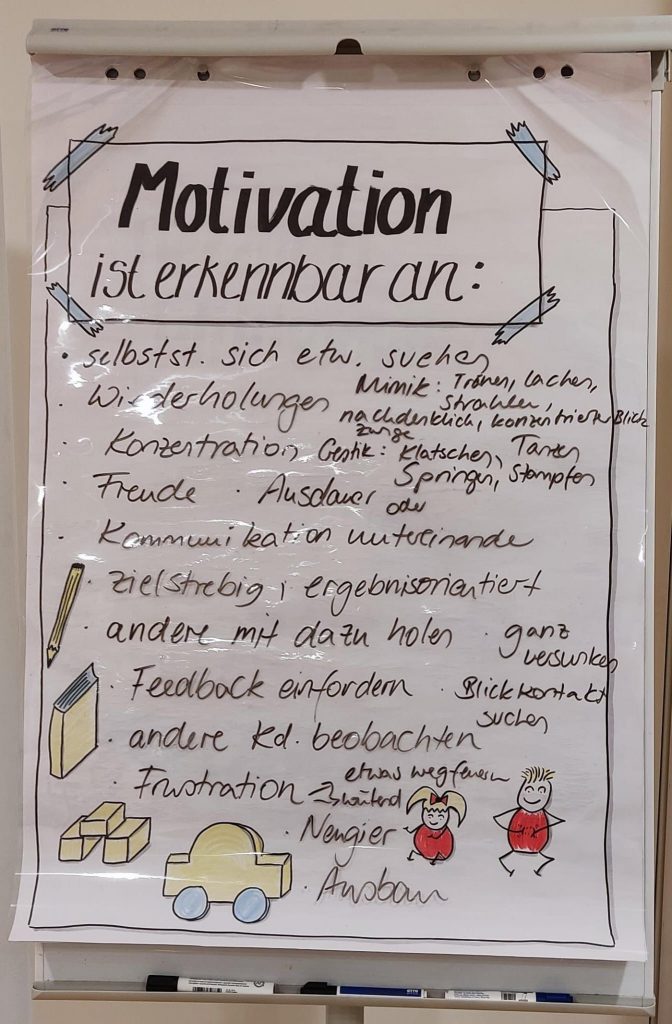 Motivation
ist erkennbar an:
• selbstst. sich etw. suchen
• Wiederholungen
Mimik: Tränen, lachen,
Strahlen,
nachdenklich, konzentrierter Blick
• Konzentration
Gestik: Klatschen, Tanzen
Springen, Stampfen
• Freude • Ausdauer
oder
• Kommunikation untereinander
• zielstrebig, ergebnisorientiert
• andere mit dazu holen • ganz
versunken
• Feedback einfordern • Blickkontakt
suchen
• andere Kd. beobachten
• Frustration → etwas wegfeuern
→ wütend
• Neugier
• Ausbau